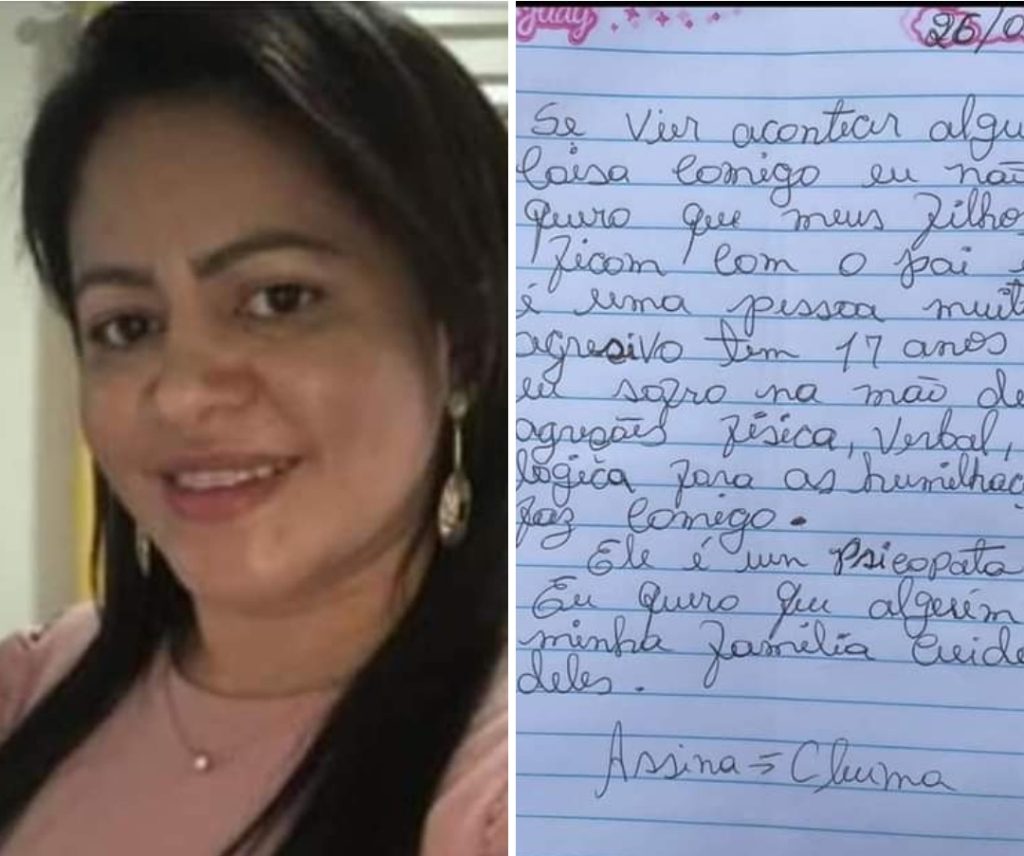 Judy
26/0
Se vier acontcar algu
Coisa comigo eu não
quro que meus filho
ficom com o pai e
é uma pessoa muit
agresivo tem 17 anos
eu sofro na mão de
agreções física, verbal,
lógica fora as humilhaç
faz comigo.
Ele é um psicopata
Eu quero que alguém
minha família cuide
deles.
Assina = Cleuma